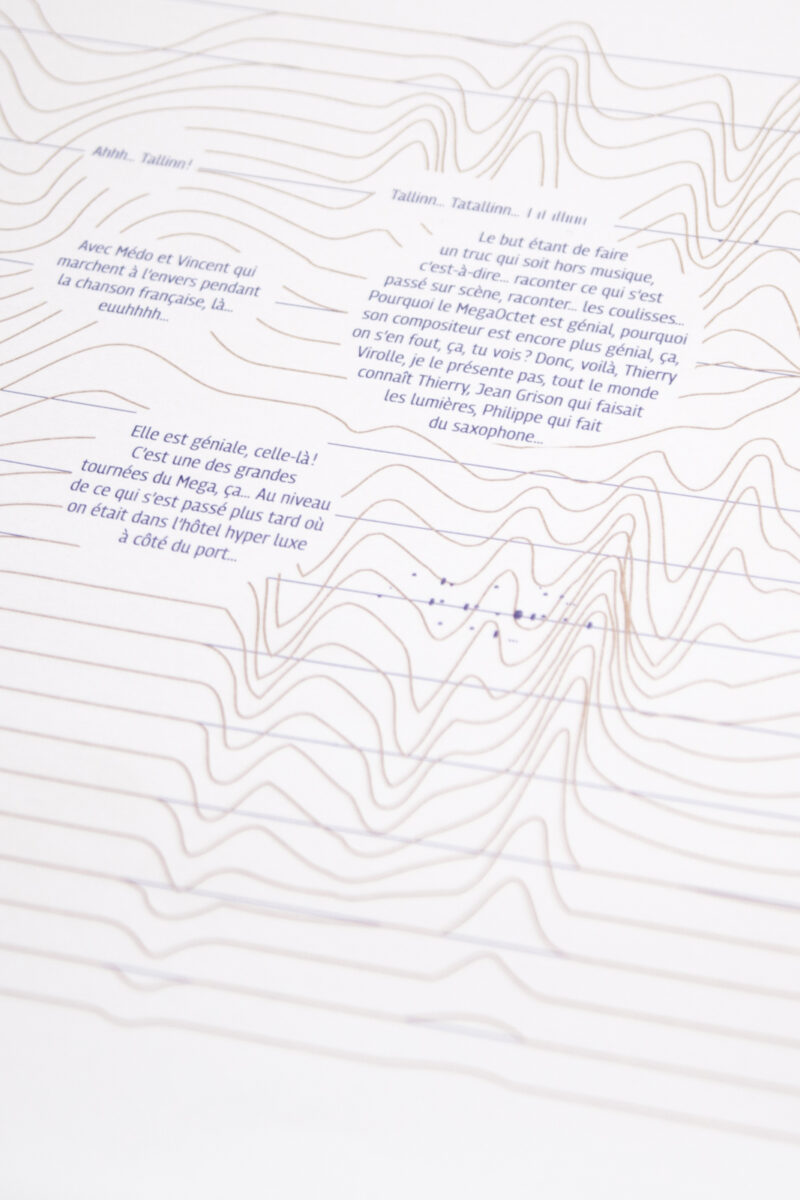 Ahhh... Tallinn!
Tallinn... Tatallinn...
Avec Médo et Vincent qui
marchent à l'envers pendant
la chanson française, là...
euuhhhh...
Le but étant de faire
un truc qui soit hors musique,
c'est-à-dire... raconter ce qui s'est
passé sur scène, raconter... les coulisses...
Pourquoi le MegaOctet est génial, pourquoi
son compositeur est encore plus génial, ça,
on s'en fout, ça, tu vois ? Donc, voilà, Thierry
Virolle, je le présente pas, tout le monde
connaît Thierry, Jean Grison qui faisait
les lumières, Philippe qui fait
du saxophone...
Elle est géniale, celle-là !
C'est une des grandes
tournées du Mega, ça... Au niveau
de ce qui s'est passé plus tard où
on était dans l'hôtel hyper luxe
à côté du port...